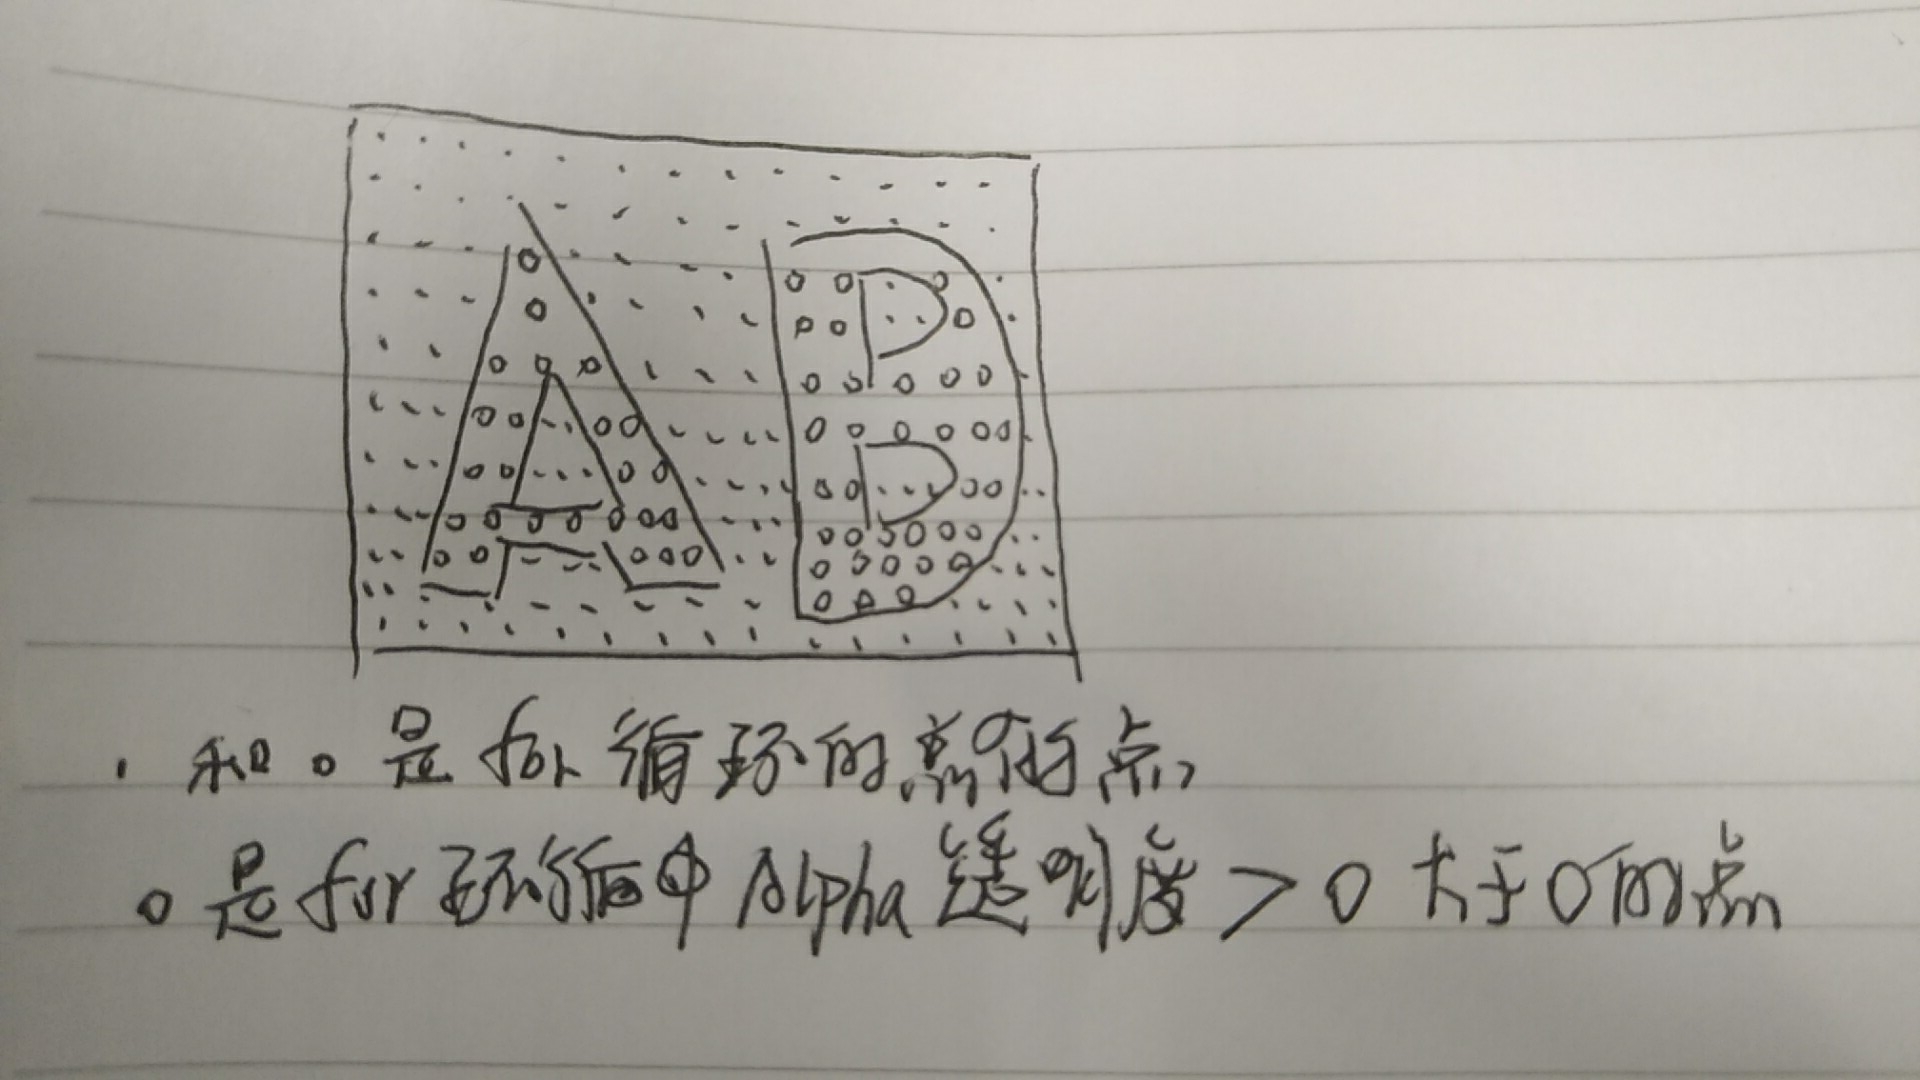 A B
· 和 o 是 for 循环的总的点
o 是 for 环循中 Alpha 透明度 > 0 大于 0 的点